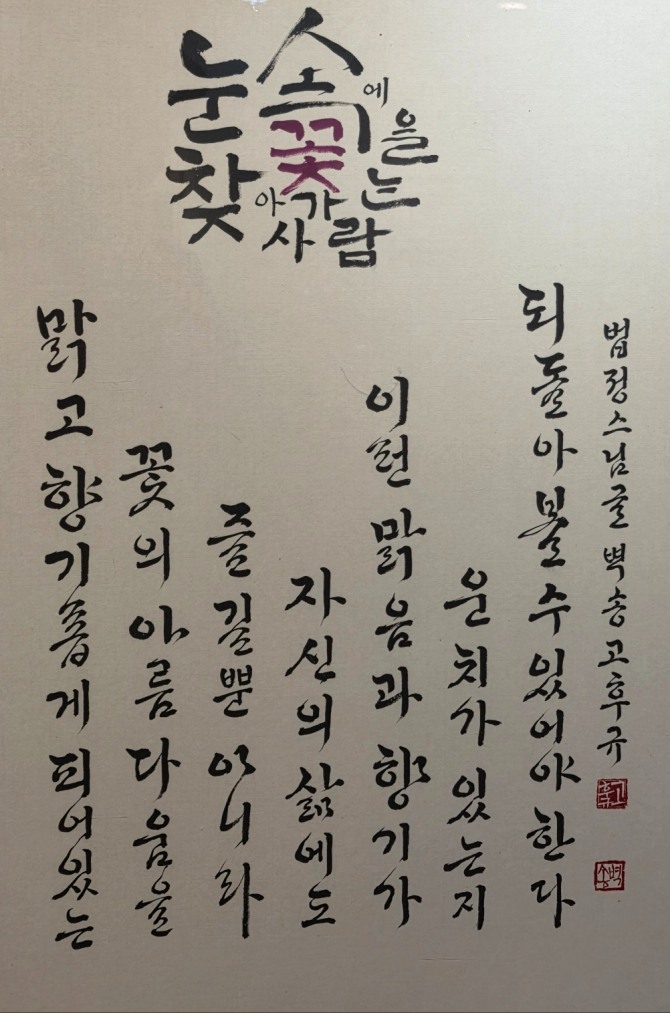 눈 속에 꽃을
찾아가는
사람
맑고 향기롭게 피어있는
꽃의 아름다움을
즐길뿐 아니라
자신의 삶에도
이런 맑음과 향기가
운치가 있는지
되돌아볼 수 있어야 한다
법정스님글 벽송 고후규